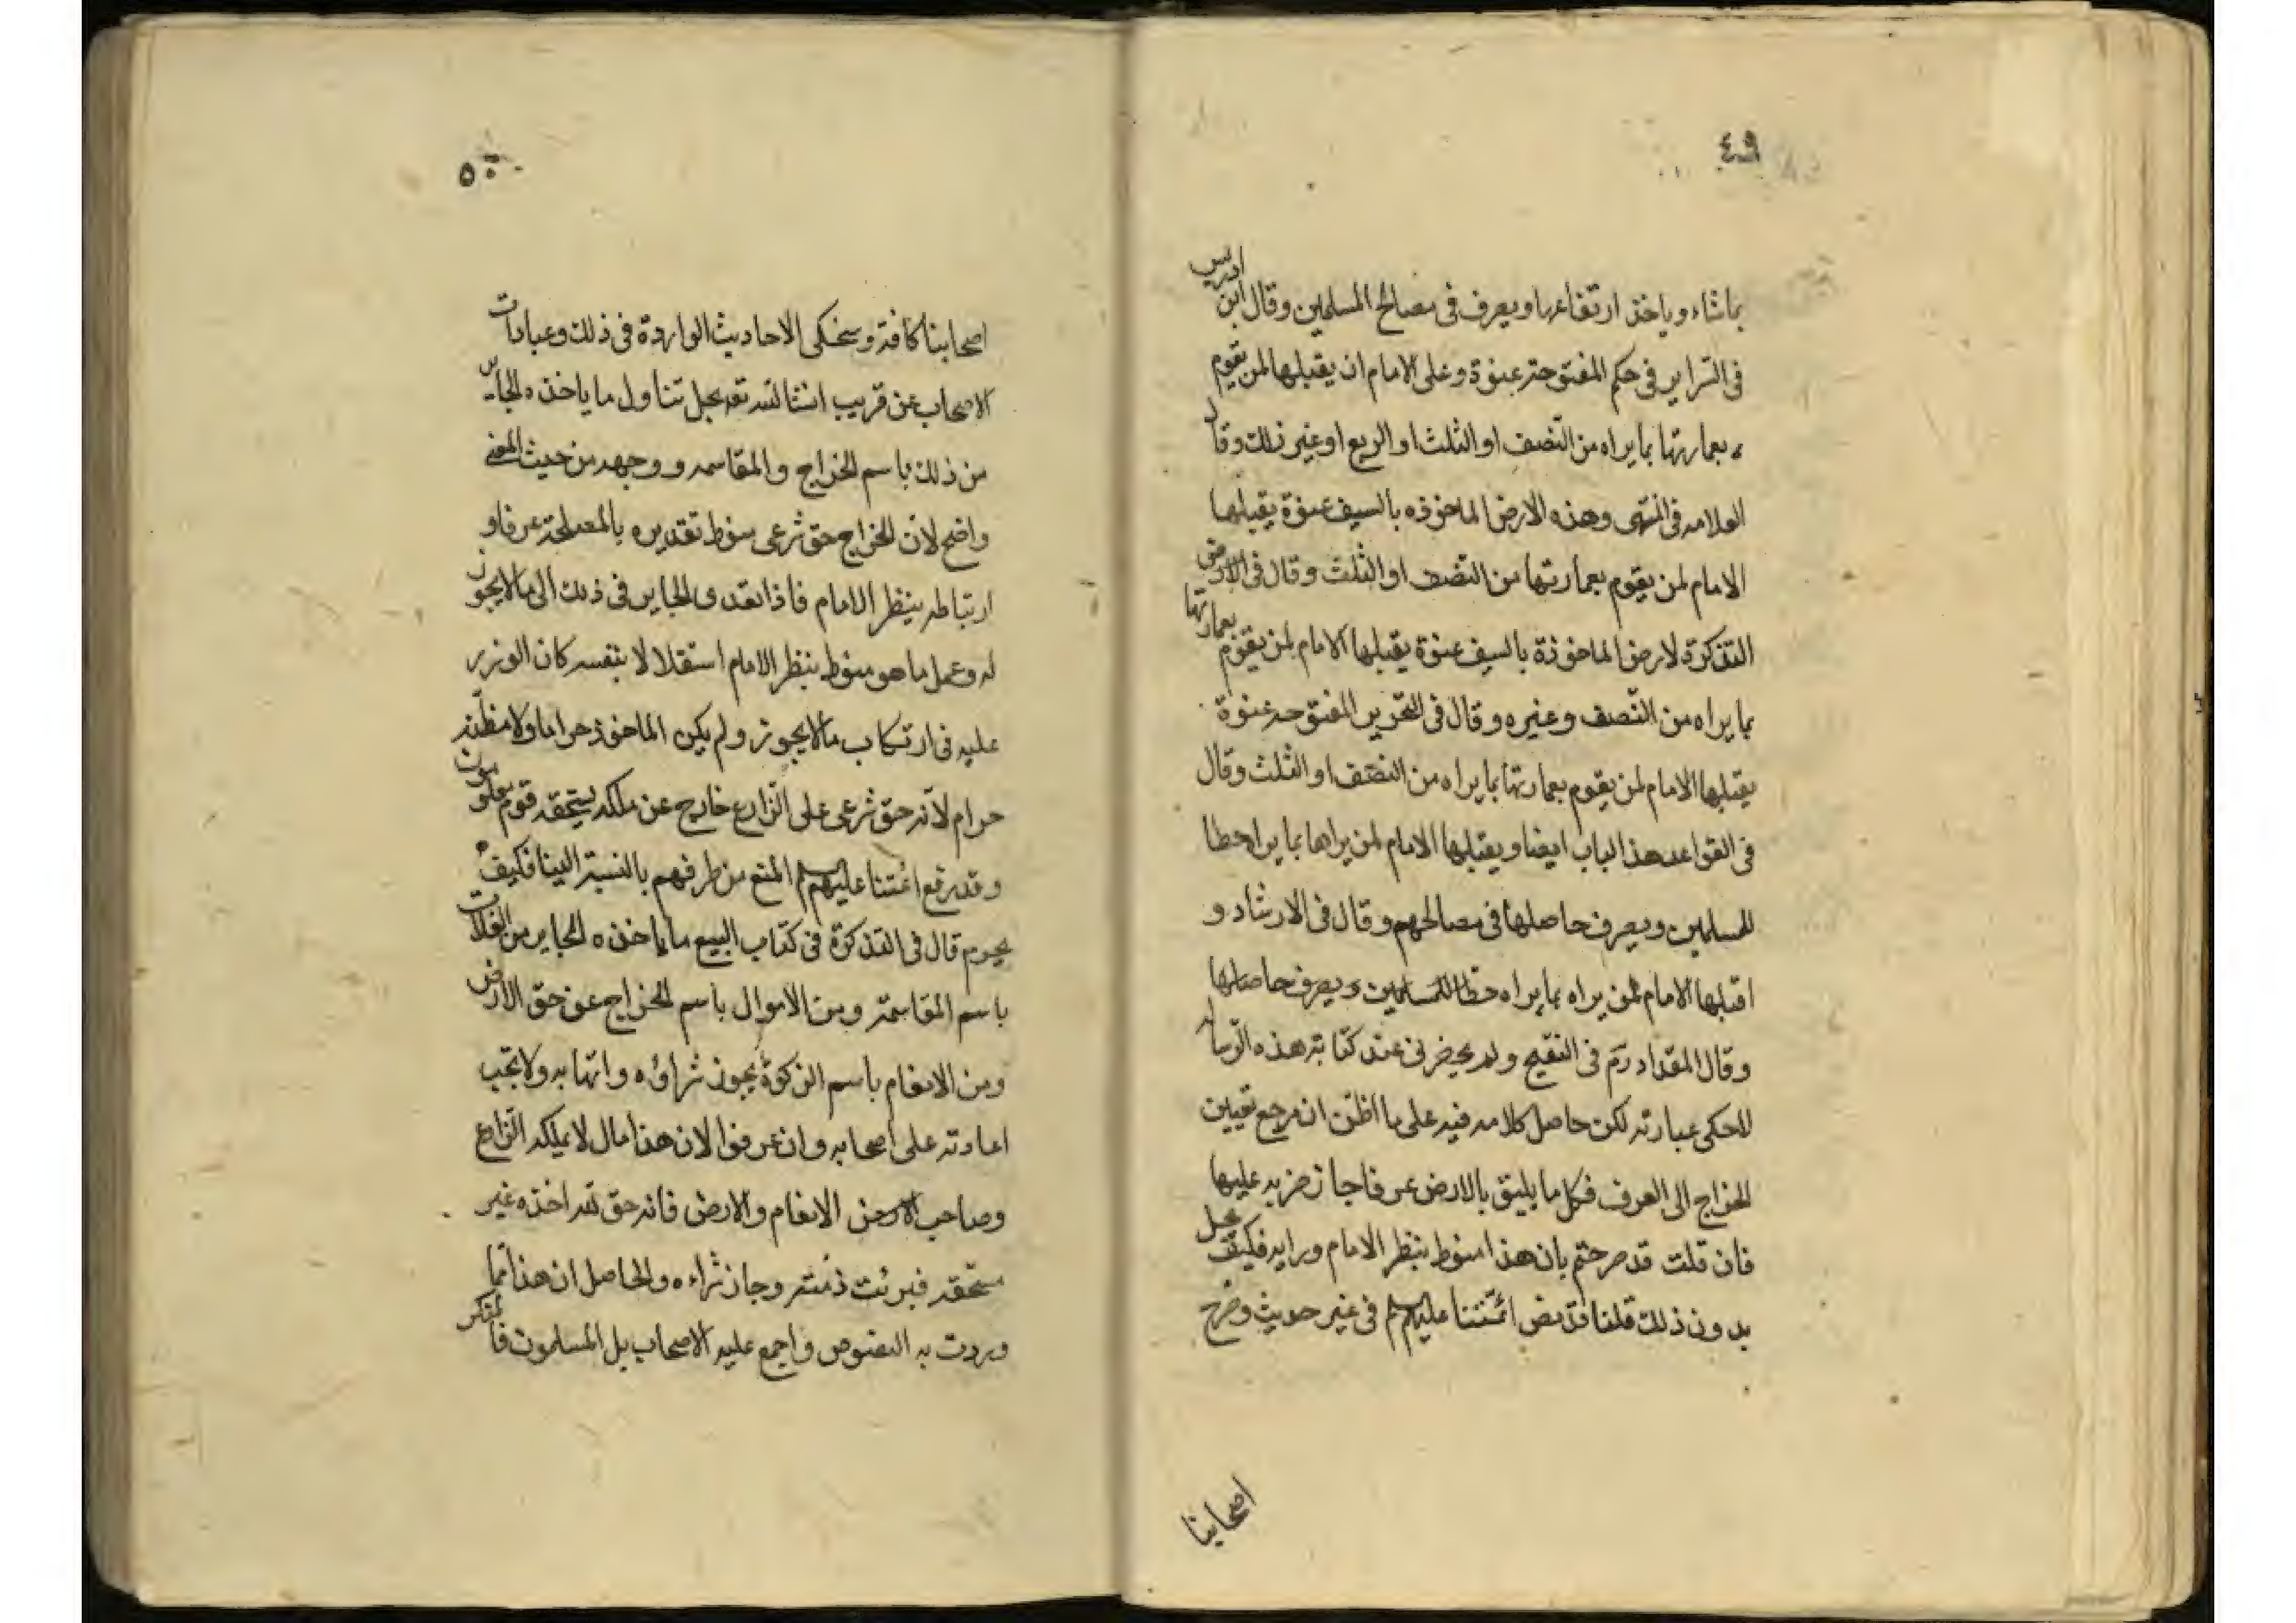 ٤٩
بما شاء وياخذ ارتفاعها ويصرف في مصالح المسلمين وقال ابن ادريس
في السراير في حكم المفتوحة عنوة وعلى الامام ان يقبلها لمن يقوم
بعمارتها بما يراه من النصف او الثلث او الربع او غير ذلك وقال
العلامه في المنتهى وهذه الارض الماخوذه بالسيف عنوة يقبلها
الامام لمن يقوم بعمارتها من النصف او الثلث وقال في الارض
التذكرة لارض الماخوذة بالسيف عنوة يقبلها الامام لمن يقوم بعمارتها
بما يراه من النصف وغيره وقال في التحرير المفتوحه عنوة
يقبلها الامام لمن يقوم بعمارتها بما يراه من النصف او الثلث وقال
في القواعد هذا الباب ايضا ويقبلها الامام لمن يراها بما يراه حظا
للمسلمين ويصرف حاصلها في مصالحهم وقال في الارشاد و
اقبلها الامام لمن يراه بما يراه حظا للمسلمين ويصرف حاصلها
وقال المقداد رم في التنقيح ولم يحضرني عند كتابة هذه الرساله
للحكى عبارته لكن حاصل كلامه فيه على ما اظن ان مرجع تعيين
الخراج الى العرف فكل ما يليق بالارض عرفا جاز ضربه عليها
فان قلت قد صرحتم بان هذا منوط بنظر الامام ورايه فكيف يحل
بدون ذلك قلنا قد نص ائمتنا عليهم السلم في غير حديث وصرح
اصحابنا
٥٠
اصحابنا كافة وسنحكى الاحاديث الواردة في ذلك وعبارات
الاصحاب عن قريب انشا لله تعه بحل تناول ما ياخذه الجاير
من ذلك باسم الخراج والمقاسمه ووجهه من حيث المعنى
واضح لان الخراج حق شرعى منوط تقديره بالمصلحة عرفا و
ارتباطه بنظر الامام فاذا تعدى الجاير في ذلك الى ما لا يجوز
له وعمل ما هو منوط بنظر الامام استقلالا بنفسه كان الوزر
عليه في ارتكاب ما لا يجوز ولم يكن الماخوذ حراما ولا مظنة
حرام لانه حق شرعى على الزارع خارج عن ملكه يستحقه قوم معلومون
وقد رفع ائمتنا عليهم السلم المنع من طرفهم بالنسبة الينا فكيف
يحرم قال في التذكرة في كتاب البيع ما ياخذه الجاير من الغلات
باسم المقاسمة ومن الاموال باسم الخراج عن حق الارض
ومن الانعام باسم الزكوة يجوز شراؤه واتهابه ولا يجب
اعادته على اصحابه وان عرفوا لان هذا مال لا يملكه الزارع
وصاحب الارض الانعام والارض فانه حق لله اخذه غير
مستحقه فبرئت ذمته وجاز شراءه والحاصل ان هذا مما
وردت به النصوص واجمع عليه الاصحاب بل المسلمون فالمنكر